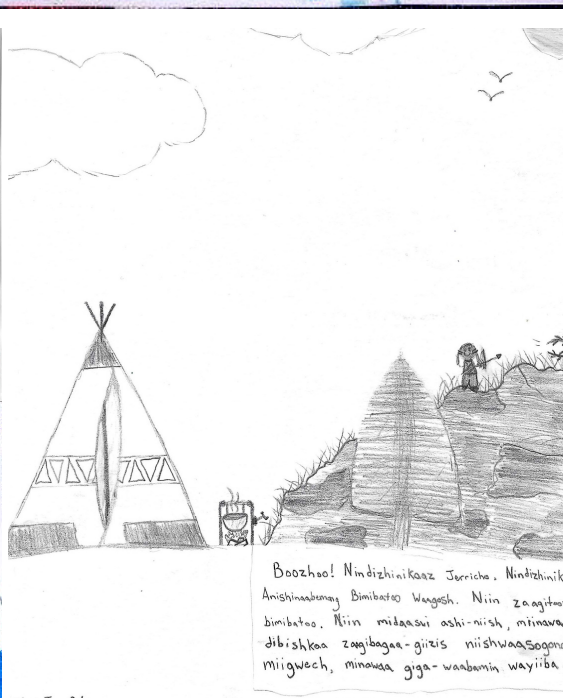 Boozhoo! Nindizhinikaaz Jerricho. Nindizhinik
Anishinaabemong Bimibatoo Waagosh. Niin zaagitoo
bimibatoo. Niin midaaswi ashi-niish, miinawa
dibishkaa zaagibagaa-giizis niishwaasogona
miigwech, minawaa giga-waabamin wayiiba